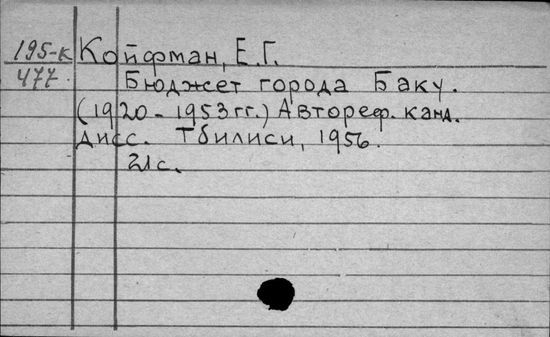 195-к Койфман, Е.Г.
477 Бюджет города Баку.
(1920-1953гг.) Автореф. канд.
дисс. Тбилиси, 1956.
21с.